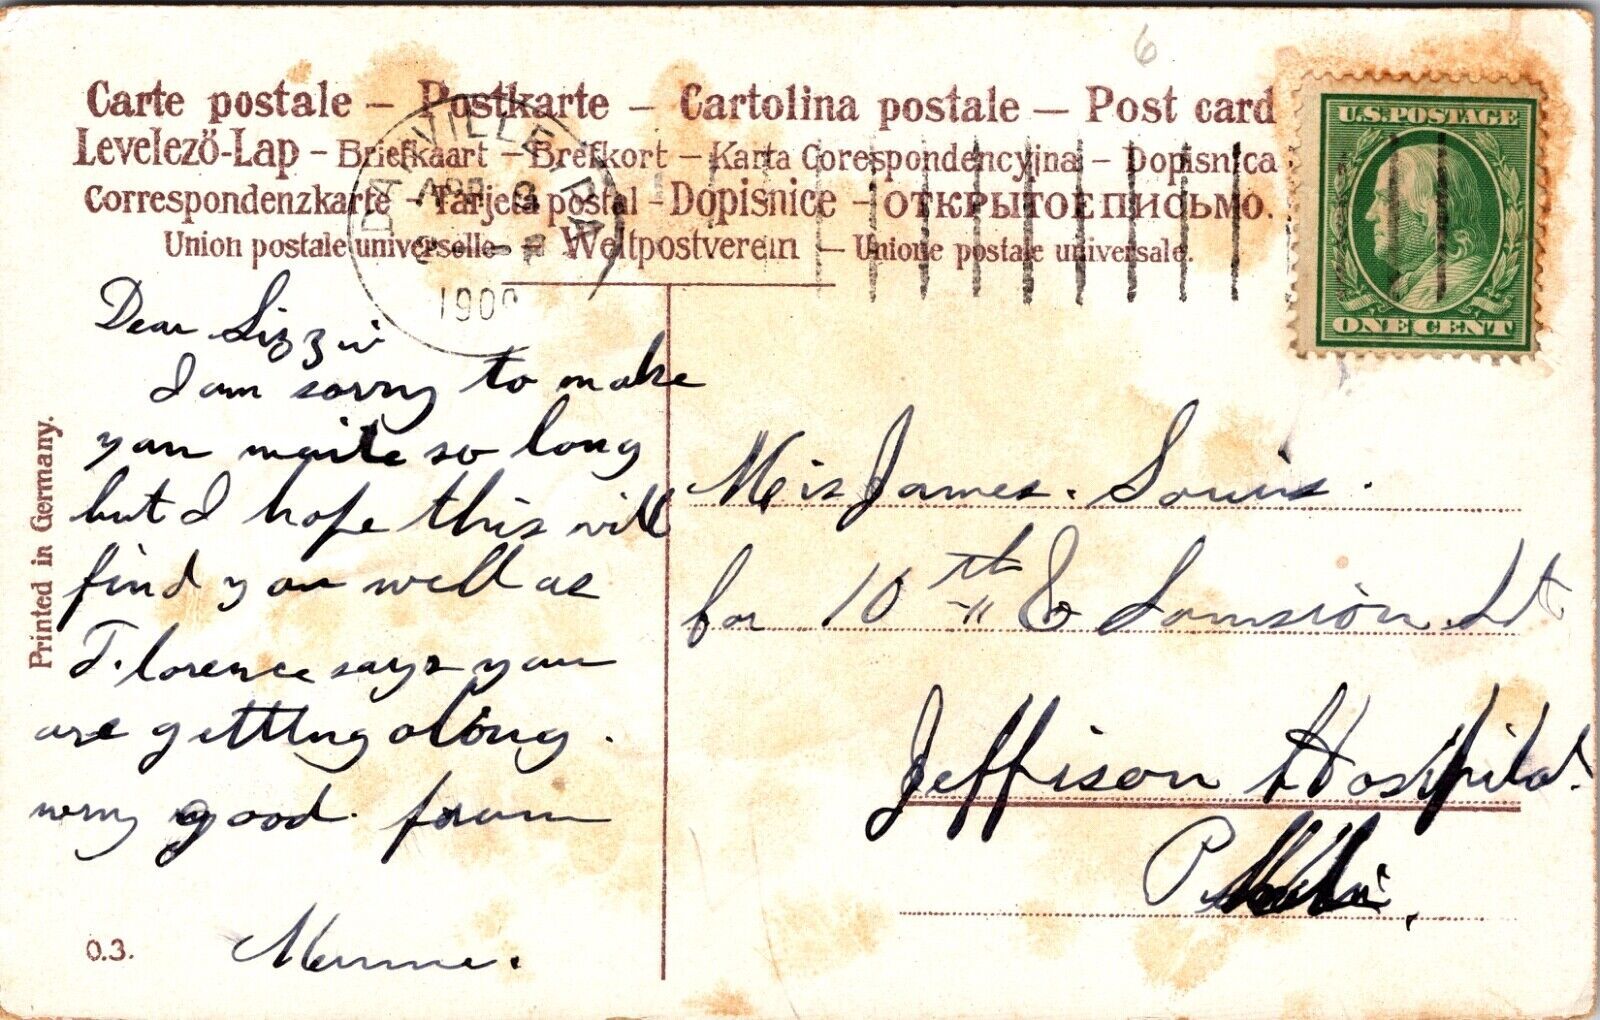 6
Carte postale – Postkarte – Cartolina postale – Post card
Levelező-Lap – Briefkaart – Brefkort – Karta Corespondencyjna – Dopisnica
Correspondenzkarte – Tarjeta postal – Dopisnice – ОТКРЫТОЕ ПИСЬМО.
Union postale universelle – Weltpostverein – Unione postale universale.
DANVILLE PA
APR 9
190
U.S. POSTAGE
ONE CENT
Printed in Germany.
Dear Lizzie
I am sorry to make
you waite so long
but I hope this will
find you well as
F.lorence says you
are getting along.
very good. from
0.3.
Mis James. Louis.
for 10th & Samsion St
Jeffison Hospital.